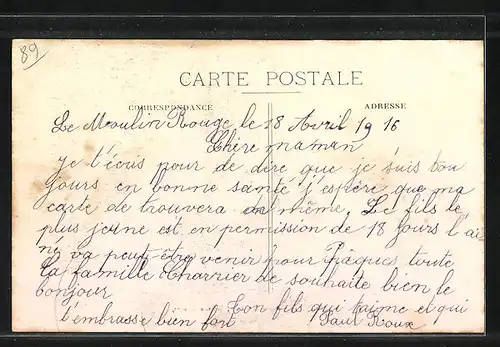 89
CARTE POSTALE
CORRESPONDANCE
ADRESSE
Le Moulin Rouge le 18 Avril 1916
Chère maman
je t'écris pour de dire que je suis tou
jours en bonne santé j'espère que ma
carte de trouvera de même. Le fils le
plus jeune est en permission de 18 jours l'ai
né va peut-être venir pour Pâques toute
la famille Charrier de souhaite bien le
bonjour
Ton fils qui t'aime et qui
t'embrasse bien fort
Paul Roux